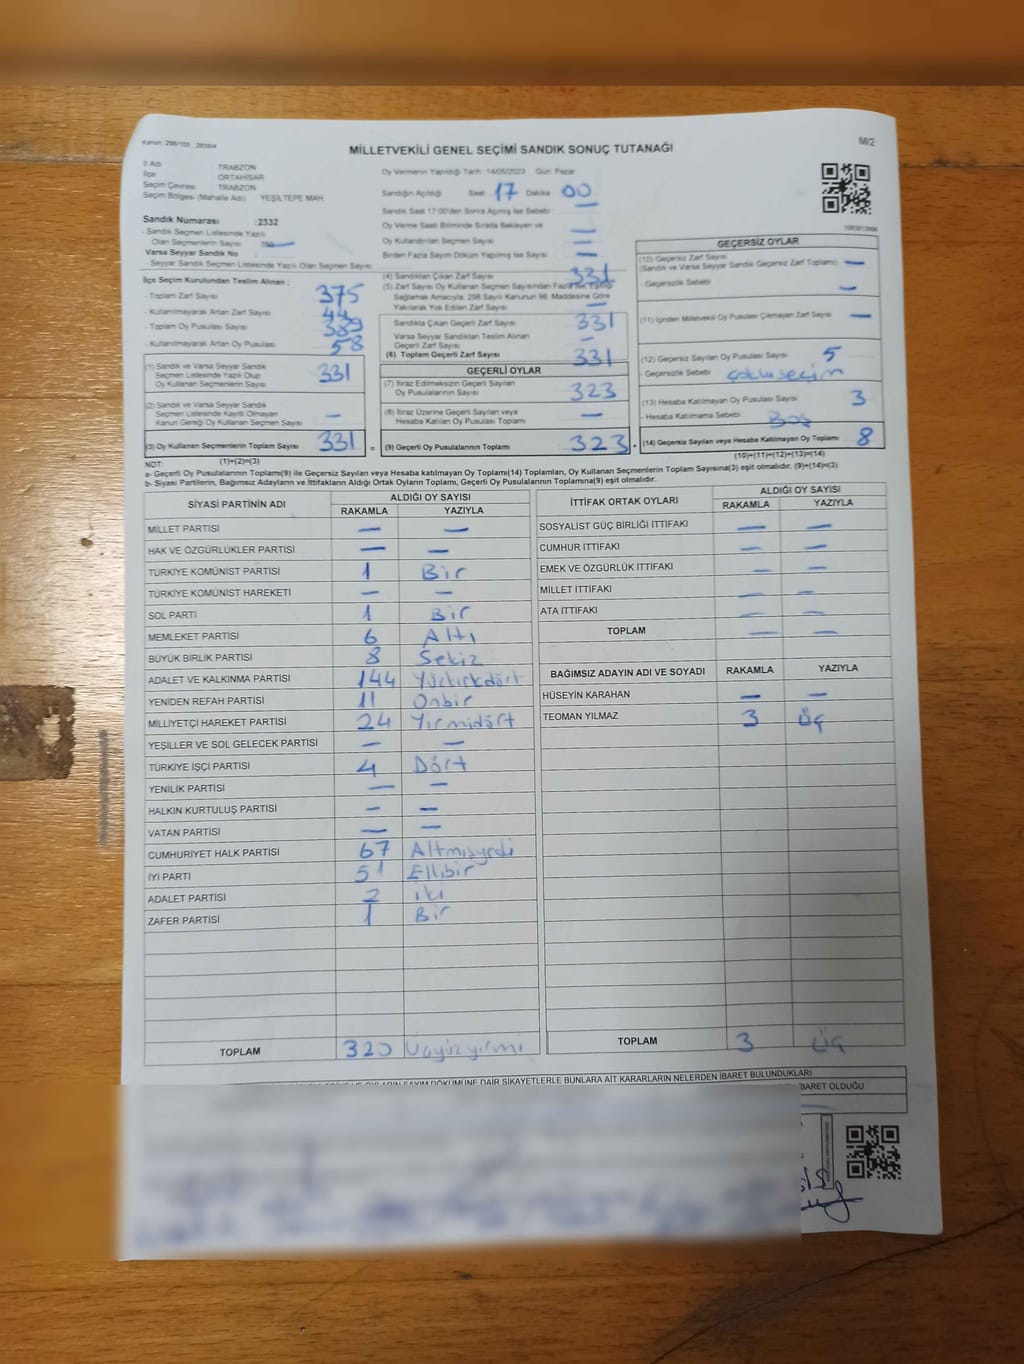 MİLLETVEKİLİ GENEL SEÇİMİ SANDIK SONUÇ TUTANAĞI
M/2
İl Adı : TRABZON
İlçe : ORTAHİSAR
Seçim Çevresi : TRABZON
Seçim Bölgesi (Mahalle Adı) : YEŞİLTEPE MAH.
Sandık Numarası : 2332
- Sandık Seçmen Listesinde Yazılı
Olan Seçmenlerin Sayısı
Varsa Seyyar Sandık No
- Seyyar Sandık Seçmen Listesinde Yazılı Olan Seçmen Sayısı
İlçe Seçim Kurulundan Teslim Alınan ;
- Toplam Zarf Sayısı 375
- Kullanılmayarak Artan Zarf Sayısı 44
- Toplam Oy Pusulası Sayısı 389
- Kullanılmayarak Artan Oy Pusulası 58
(1) Sandık ve Varsa Seyyar Sandık
Seçmen Listesinde Yazılı Olup
Oy Kullanan Seçmenlerin Sayısı 331
(2) Sandık ve Varsa Seyyar Sandık
Seçmen Listesinde Kayıtlı Olmayan
Kanun Gereği Oy Kullanan Seçmen Sayısı —
(3) Oy Kullanan Seçmenlerin Toplam Sayısı 331 =
(1)+(2)=(3)
Oy Vermenin Yapıldığı Tarih 14/05/2023 Gün: Pazar
Sandığın Açıldığı Saat 17 Dakika 00
Sandık Saat 17:00'den Sonra Açılmış İse Sebebi —
Oy Verme Saati Bitiminde Sırada Bekleyen ve —
Oy Kullandırılan Seçmen Sayısı —
Birden Fazla Sayım Döküm Yapılmış İse Sayısı —
(4) Sandıktan Çıkan Zarf Sayısı 331
(5) Zarf Sayısı Oy Kullanan Seçmen Sayısından Fazla İse, Eşitliği
Sağlamak Amacıyla; 298 Sayılı Kanunun 98. Maddesine Göre
Yakılarak Yok Edilen Zarf Sayısı —
Sandıkta Çıkan Geçerli Zarf Sayısı 331
Varsa Seyyar Sandıktan Teslim Alınan
Geçerli Zarf Sayısı —
(6) Toplam Geçerli Zarf Sayısı 331
GEÇERLİ OYLAR
(7) İtiraz Edilmeksizin Geçerli Sayılan
Oy Pusulalarının Sayısı 323
(8) İtiraz Üzerine Geçerli Sayılan veya
Hesaba Katılan Oy Pusulası Toplamı —
(9) Geçerli Oy Pusulalarının Toplamı 323 +
GEÇERSİZ OYLAR
(10) Geçersiz Zarf Sayısı
(Sandık ve Varsa Seyyar Sandık Geçersiz Zarf Toplamı) —
- Geçersizlik Sebebi —
(11) İçinden Milletvekili Oy Pusulası Çıkmayan Zarf Sayısı —
(12) Geçersiz Sayılan Oy Pusulası Sayısı 5
- Geçersizlik Sebebi
(13) Hesaba Katılmayan Oy Pusulası Sayısı 3
- Hesaba Katılmama Sebebi Boş
(14) Geçersiz Sayılan veya Hesaba Katılmayan Oy Toplamı 8
(10)+(11)+(12)+(13)=(14)
NOT:
a- Geçerli Oy Pusulalarının Toplamı(9) ile Geçersiz Sayılan veya Hesaba katılmayan Oy Toplamı(14) Toplamları, Oy Kullanan Seçmenlerin Toplam Sayısına(3) eşit olmalıdır. (9)+(14)=(3)
b- Siyasi Partilerin, Bağımsız Adayların ve İttifakların Aldığı Ortak Oyların Toplamı, Geçerli Oy Pusulalarının Toplamına(9) eşit olmalıdır.
SİYASİ PARTİNİN ADI ALDIĞI OY SAYISI
RAKAMLA YAZIYLA
MİLLET PARTİSİ — —
HAK VE ÖZGÜRLÜKLER PARTİSİ — —
TÜRKİYE KOMÜNİST PARTİSİ 1 Bir
TÜRKİYE KOMÜNİST HAREKETİ — —
SOL PARTİ 1 Bir
MEMLEKET PARTİSİ 6 Altı
BÜYÜK BİRLİK PARTİSİ 8 Sekiz
ADALET VE KALKINMA PARTİSİ 144 Yüzkırkdört
YENİDEN REFAH PARTİSİ 11 Onbir
MİLLİYETÇİ HAREKET PARTİSİ 24 Yirmidört
YEŞİLLER VE SOL GELECEK PARTİSİ — —
TÜRKİYE İŞÇİ PARTİSİ 4 Dört
YENİLİK PARTİSİ — —
HALKIN KURTULUŞ PARTİSİ — —
VATAN PARTİSİ — —
CUMHURİYET HALK PARTİSİ 67 Altmışyedi
İYİ PARTİ 51 Ellibir
ADALET PARTİSİ 2 iki
ZAFER PARTİSİ 1 Bir
TOPLAM 320 Üçyüzyirmi
İTTİFAK ORTAK OYLARI ALDIĞI OY SAYISI
RAKAMLA YAZIYLA
SOSYALİST GÜÇ BİRLİĞİ İTTİFAKI — —
CUMHUR İTTİFAKI — —
EMEK VE ÖZGÜRLÜK İTTİFAKI — —
MİLLET İTTİFAKI — —
ATA İTTİFAKI — —
TOPLAM — —
BAĞIMSIZ ADAYIN ADI VE SOYADI RAKAMLA YAZIYLA
HÜSEYİN KARAHAN — —
TEOMAN YILMAZ 3 Üç
TOPLAM 3 Üç
DÖKÜMÜNE DAİR ŞİKAYETLERLE BUNLARA AİT KARARLARIN NELERDEN İBARET BULUNDUKLARI
İBARET OLDUĞU